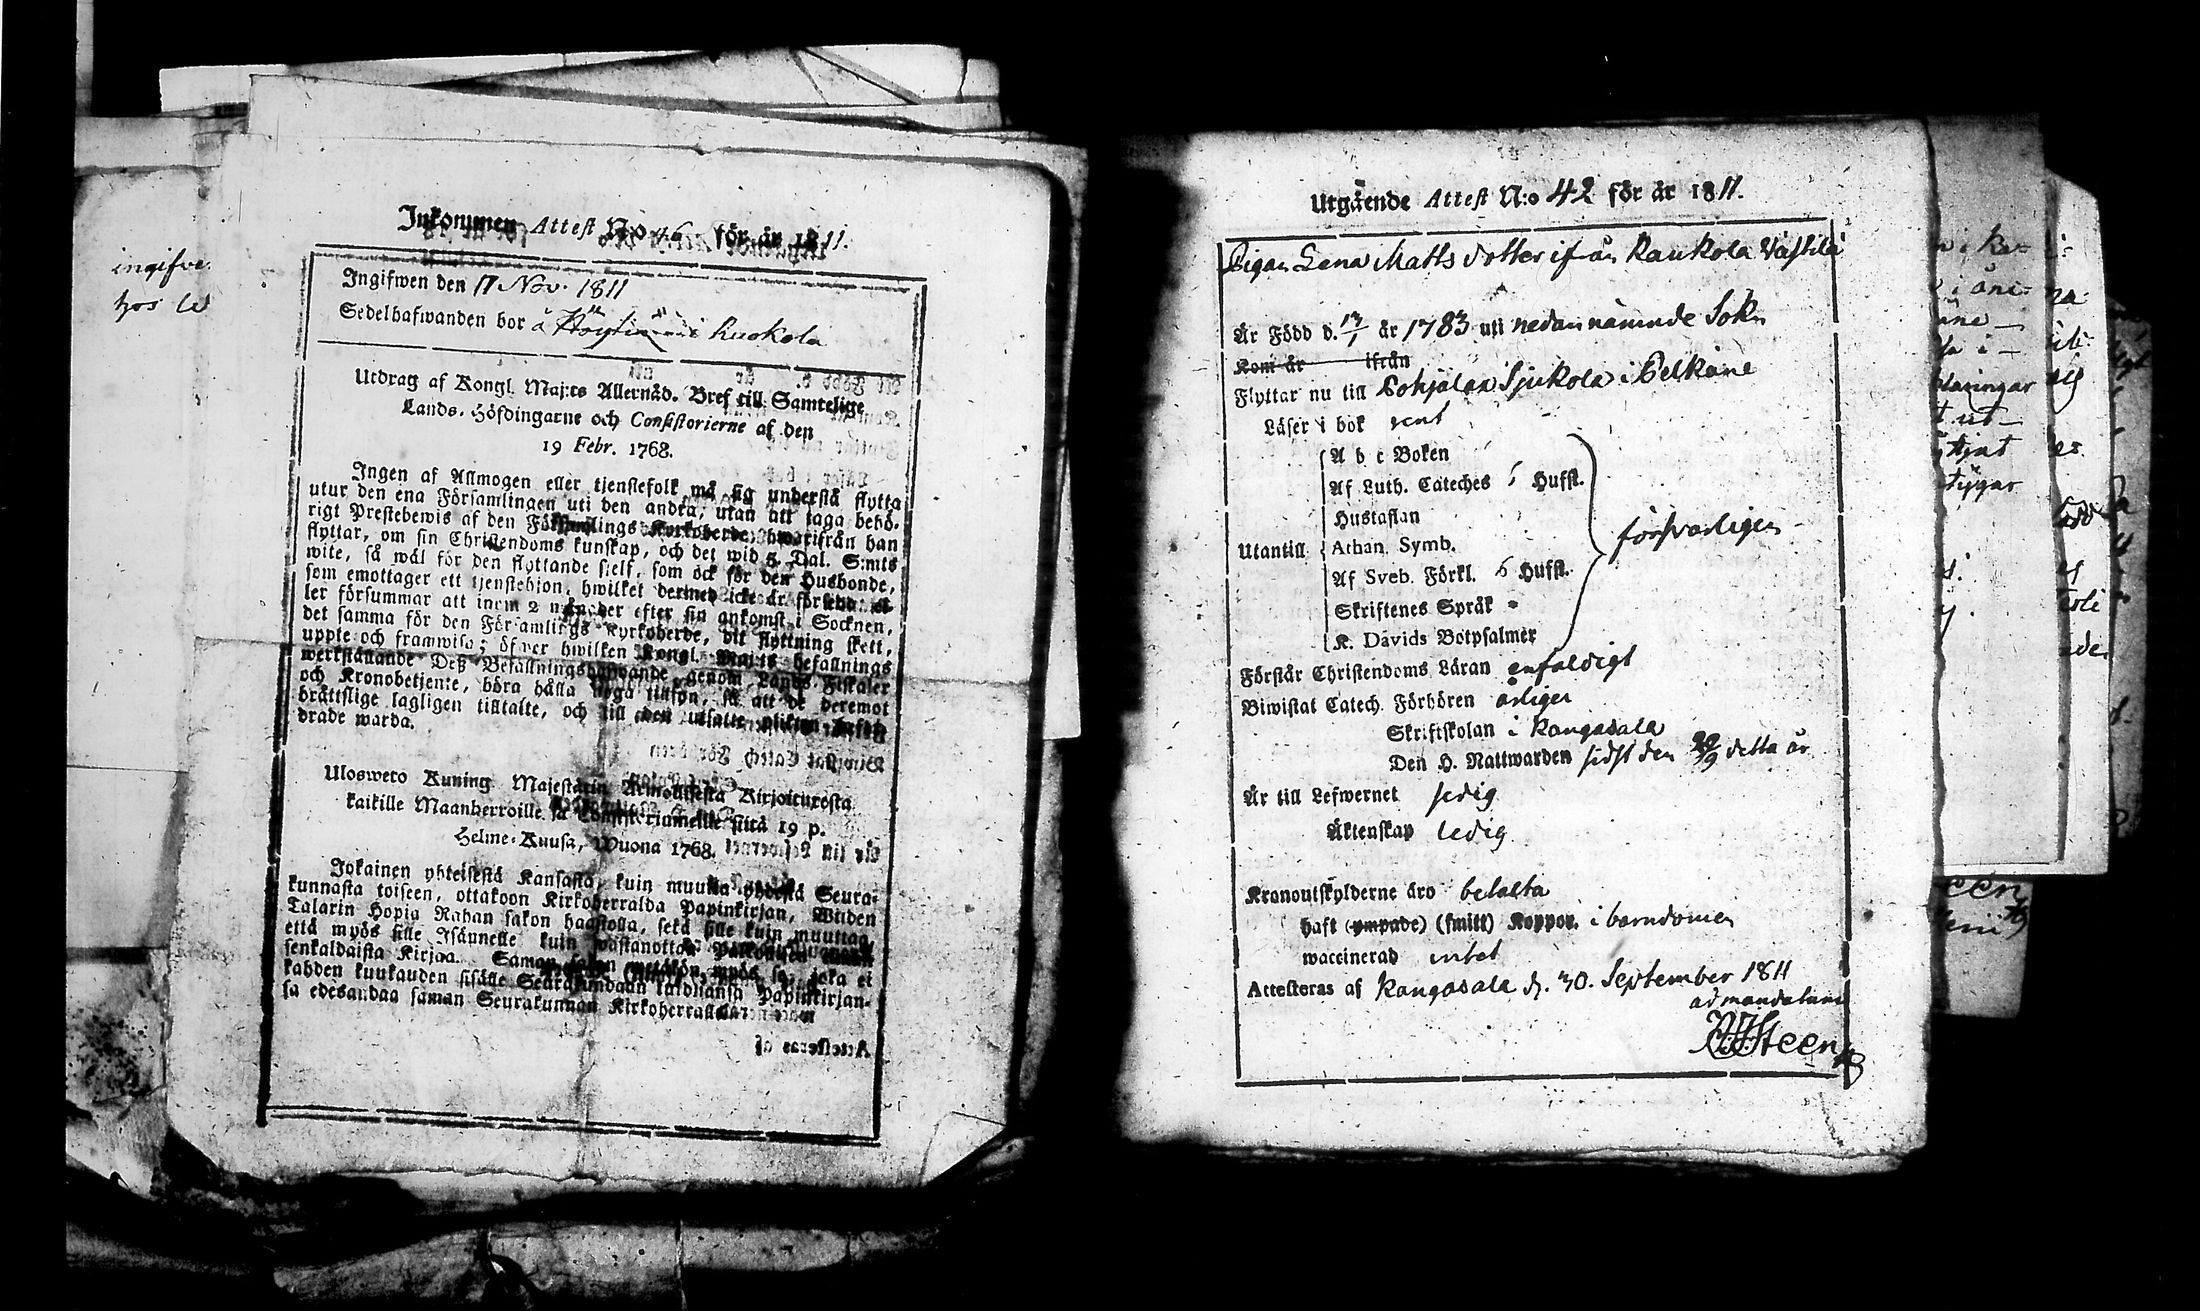 ingifve
hos
Inkommen Attest N:o 46 för år 1811.
Ingifwen den 17 Nov. 1811
Sedelhafwanden bor å i Luokola
Utdrag af Kongl. Maj:ts Allernåd. Bref till Samtelige
Lands-Höfdingarne och Consistorierne af den
19 Febr. 1768.
Ingen af Allmogen eller tjenstefolk må sig understå flytta
utur den ena Församlingen uti den andra, utan att taga behö-
rigt Prestebewis af den Församlings Kyrkoherde, hwarifrån han
flyttar, om sin Christendoms kunskap, och det wid 5. Dal. S:mts
wite, så wäl för den flyttande sjelf, som ock för den Husbonde,
som emottager ett tjenstehjon, hwilket dermed icke är försedt, el-
ler försummar att inom 2 månader efter sin ankomst i Socknen,
det samma för den Församlings Kyrkoherde, dit flyttning skett,
uppte och framwisa; öfwer hwilken Kongl. Maj:ts befallnings
werkställande Deß Befallningshafwande genom Lands Fiskaler
och Kronobetjente, böra hålla noga tillsyn, så att de deremot
brättslige lagligen tilltalte, och till den utsatte plikten befor-
drade warda.
Uloswero Kuning. Majestätin Armollisesta Kirjoituxesta
kaikille Maanherroille ja Consistoriumeille siitä 19 p.
Helme-Kuusa, Wuona 1768.
Jokainen yhteisestä Kansasta, kuin muutta yhdestä Seura-
kunnasta toiseen, ottakoon Kirkoherralda Papinkirjan, Wiiden
Talarin Hopia Rahan sakon haastolla, sekä sille kuin muuttaa,
että myös sille Isännelle kuin wastanottaa Palkollisen ilman
senkaldaista Kirjaa. Saman sakon wetäkön myös se, joka ei
kahden kuukauden sisälle Seurakundaan tulduansa Papinkirjan-
sa edesandaa saman Seurakunnan Kirkoherralle
Utgående Attest N:o 42 för år 1811.
Pigan Lena Matts dotter ifrån Kaukola Västilä
Är Född d. 17/1 år 1783 uti nedannämnde Sokn
Kom år ifrån
Flyttar nu till Pohjalan Sjukola i Pelkäne
Läser i bok rent
Utantill
A b c Boken
Af Luth. Cateches 6 Hufst.
Hustaflan
Athan. Symb.
Af Sveb. Förkl. 6 Hufst.
Skriftenes Språk
K. Davids Botpsalmer
försvarligen
Förstår Christendoms Läran enfaldigt
Biwistat Catech. Förhören årligen
Skriftskolan i Kangasala
Den H. Nattwarden sidst den 29/9 detta år
Är till Lefwernet sedig
Äktenskap ledig
Kronoutskylderne äro betalta
haft (ympade) (smitt) Koppor. i barndomen
waccinerad intet
Attesteras af Kangasala d. 30. September 1811
ad mandatum
Steen